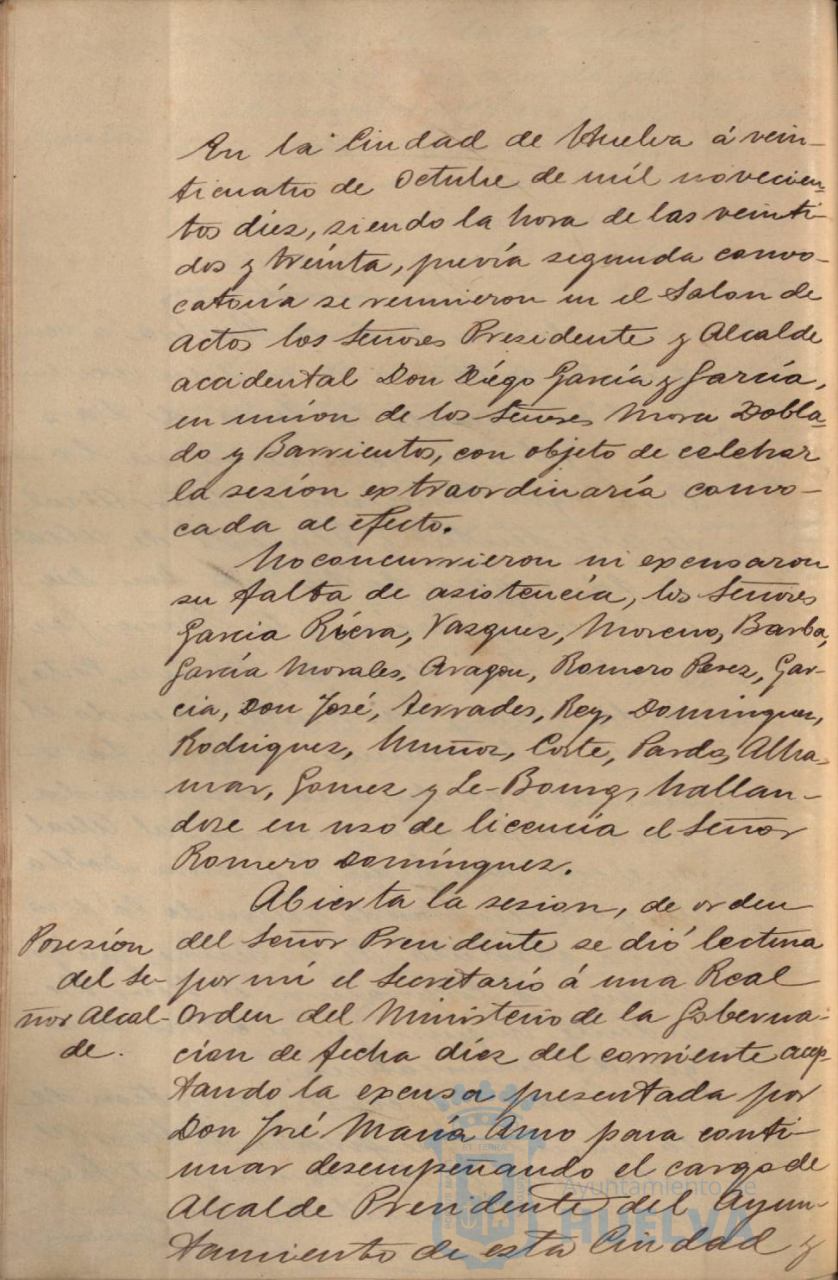 En la Ciudad de Huelva á vein-
ticuatro de Octubre de mil novecien-
tos diez, siendo la hora de las veinti-
dos y treinta, previa segunda convo-
catoria se reunieron en el Salon de
actos los Señores Presidente y Alcalde
accidental Don Diego García y García,
en union de los Señores Mora Dobla-
do y Barrientos, con objeto de celebrar
la sesión extraordinaria convo-
cada al efecto.
No concurrieron ni excusaron
su falta de asistencia, los Señores
Garcia Riera, Vazquez, Moreno, Barba,
García Morales, Aragon, Romero Perez, Gar-
cia, Don José, Terrades, Rey, Dominguez,
Rodriguez, Muñoz, Corte, Pardo, Alba-
mar, Gomez y Le-Bourg, hallan-
dose en uso de licencia el Señor
Romero Domínguez.
Abierta la sesion, de orden
del Señor Presidente se dió lectura
por mí el Secretario á una Real
Orden del Ministerio de la Goberna-
cion de fecha diez del corriente acep-
tando la excusa presentada por
Don José María Amo para conti-
nuar desempeñando el cargo de
Alcalde Presidente del Ayun-
tamiento de esta Ciudad y
Posesión
del Se-
ñor Alcal-
de.
Ayuntamiento de
HUELVA